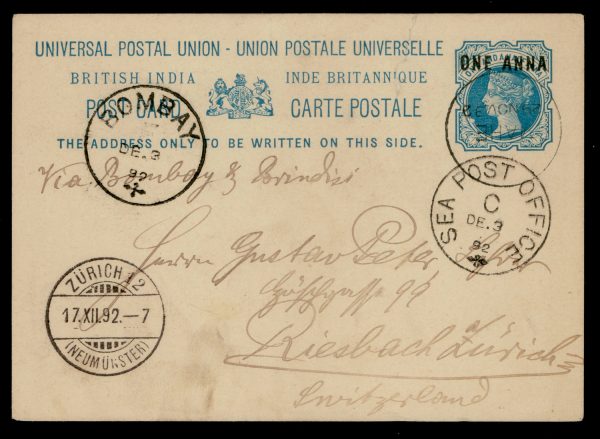 UNIVERSAL POSTAL UNION - UNION POSTALE UNIVERSELLE
BRITISH INDIA INDE BRITANN'QUE
POST CARD CARTE POSTALE
THE ADDRESS ONLY TO BE WRITTEN ON THIS SIDE.
ONE ANNA
BOMBAY
DE.3
92
SEA POST OFFICE
C
DE.3
92
Via Bombay & Brindisi
Herrn Gustav Peter
Riesbach Zürich
Switzerland
ZÜRICH 12
17.XII.92.–7
(NEUMÜNSTER)